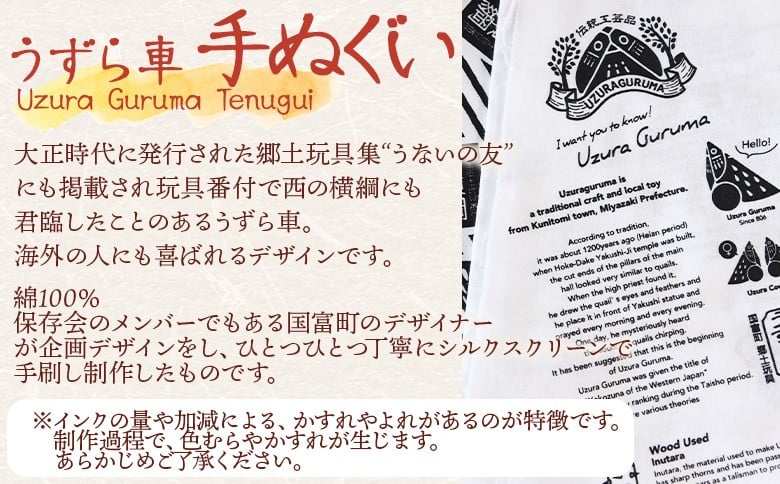 うずら車 手ぬぐい
Uzura Guruma Tenugui
大正時代に発行された郷土玩具集“うないの友”
にも掲載され玩具番付で西の横綱にも
君臨したことのあるうずら車。
海外の人にも喜ばれるデザインです。
綿100%
保存会のメンバーでもある国富町のデザイナー
が企画デザインをし、ひとつひとつ丁寧にシルクスクリーンで
手刷し制作したものです。
※インクの量や加減による、かすれやよれがあるのが特徴です。
制作過程で、色むらやかすれが生じます。
あらかじめご了承ください。
伝統工芸品
UZURAGURUMA
I want you to know!
Uzura Guruma
Uzuraguruma is
a traditional craft and local toy
from Kunitomi town, Miyazaki Prefecture.
According to tradition,
it was about 1200years ago (Heian period)
when Hoke-Dake Yakushi-Ji temple was built,
the cut ends of the pillars of the main
hall looked very similar to quails.
When the high priest found it,
he drew the quail's eyes and feathers and
he place it in front of Yakushi statue and
prayed every morning and every evening.
One day, he mysteriously heard
quails chirping.
It has been suggested that this is the beginning
of Uzura Guruma.
Uzura Guruma was given the title of
"Yokozuna of the Western Japan"
ranking during the Taisho period.
are various theories
Hello!
Uzura Guruma
Since 806
Uzura Guruma
国富町 郷土玩具
Wood Used
Inutara
Inutara, the material used to make U
has sharp thorns and has been pass
ars as a talisman to pro